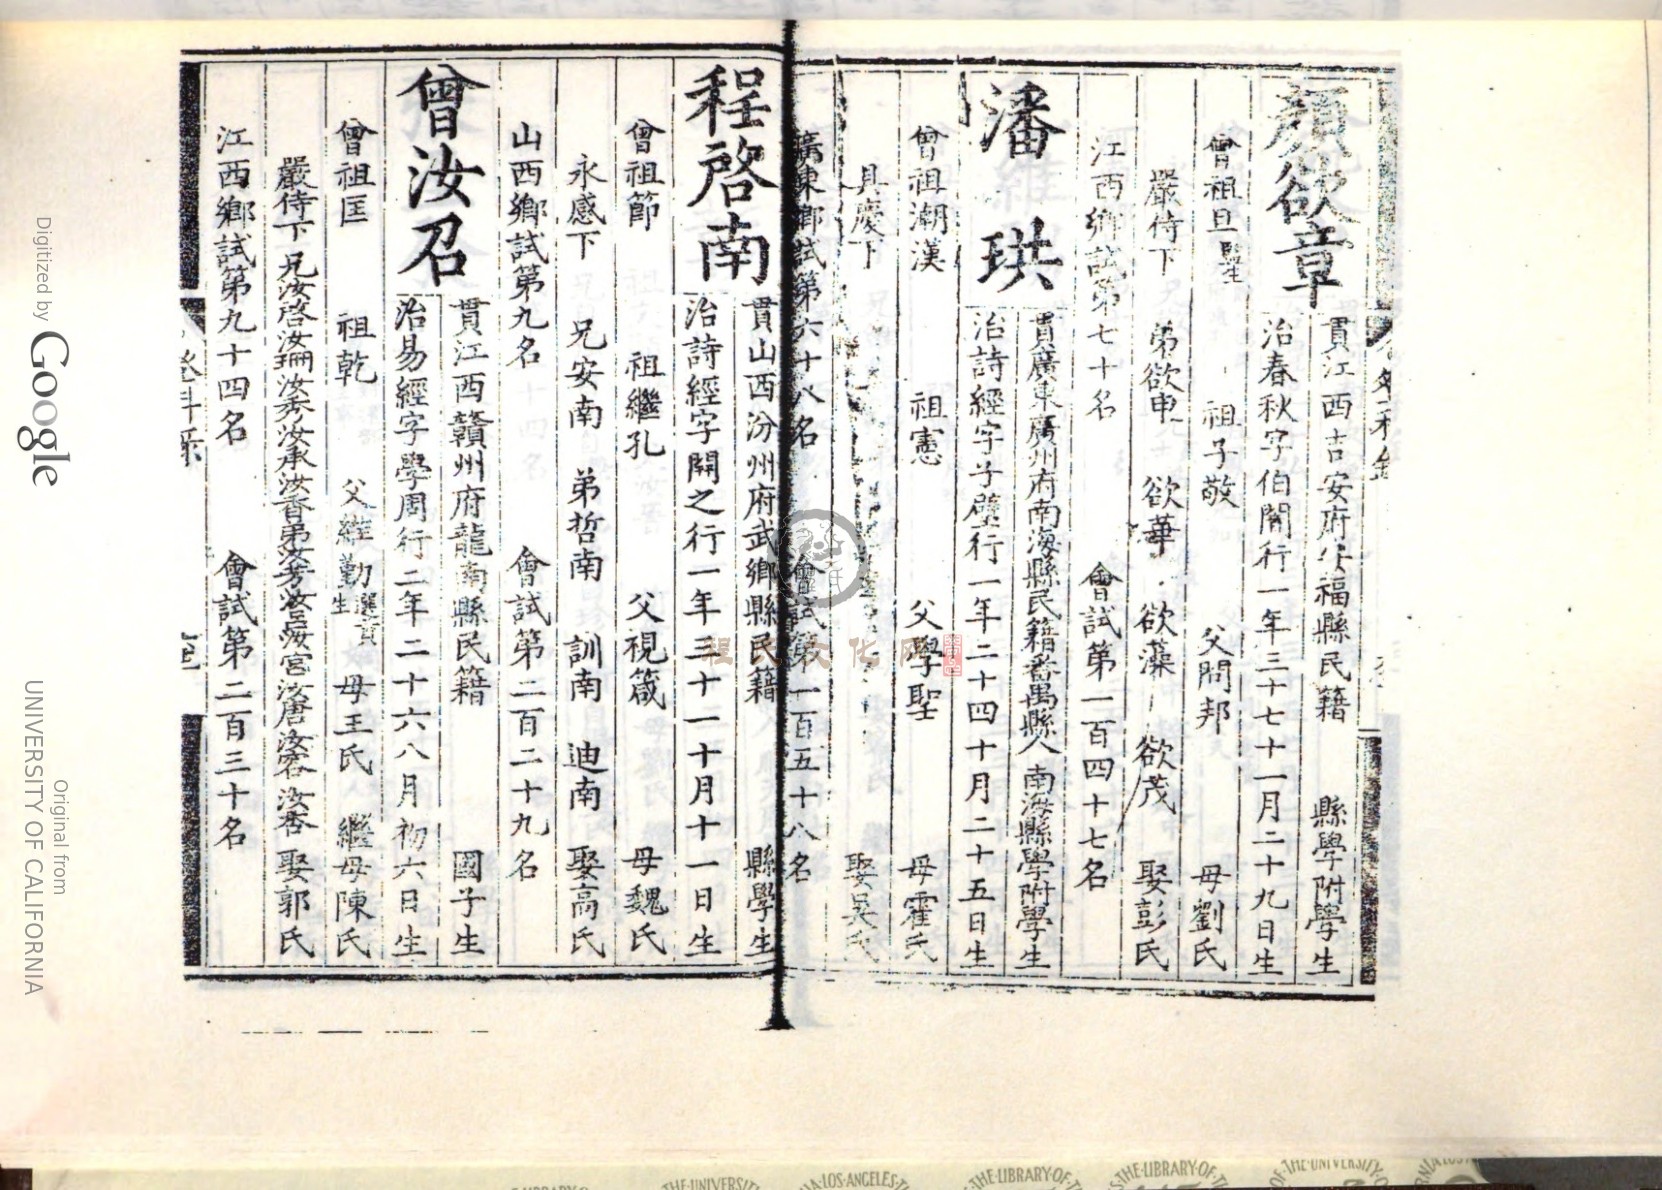 顏欲章
貫江西吉安府安福縣民籍 縣學附學生
治春秋字伯闇行一年三十七十一月二十九日生
曾祖旦 監生 祖子敬 父問邦 母劉氏
嚴侍下 弟欲申 欲華 欲藻 欲茂 娶彭氏
江西鄉試第七十名 會試第一百四十七名
潘珙
貫廣東廣州府南海縣民籍番禺縣人南海縣學附學生
治詩經字子璧行一年二十四十月二十五日生
曾祖潮漢 祖憲 父學聖 母霍氏
具慶下 娶吳氏
廣東鄉試第六十八名 會試第一百五十八名
程啓南
貫山西汾州府武鄉縣民籍 縣學生
治詩經字開之行一年三十一十月十一日生
曾祖節 祖繼孔 父視箴 母魏氏
永感下 兄安南 弟哲南 訓南 迪南 娶高氏
山西鄉試第九名 會試第二百二十九名
曾汝召
貫江西贛州府龍南縣民籍 國子生
治易經字學周行二年二十六八月初六日生
曾祖匡 祖乾 父維勤 選貢生 母王氏 繼母陳氏
嚴侍下 兄汝啓汝珊汝秀汝承汝香弟汝芳汝 汝宮汝唐汝睿汝杏 娶郭氏
江西鄉試第九十四名 會試第二百三十名
登科錄
程氏文化网
Digitized by Google
Original from
UNIVERSITY OF CALIFORNIA
THE·UNIVERSITY
LOS·ANGELES
THE·LIBRARY·OF
THE·LIBRARY·OF
THE·UNIVERSITY